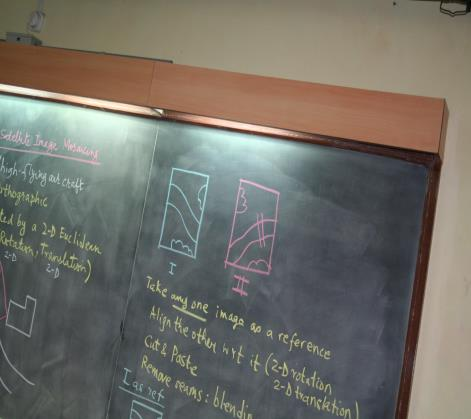 Satellite Image Mosaicing
high-flying air craft
orthographic
ted by a 2-D Euclidean
Rotation, Translation)
2-D 2-D
I
II
Take any one image as a reference
Align the other w.r.t it (2-D rotation
2-D translation)
Cut & Paste
Remove seams: blendin
I as ref